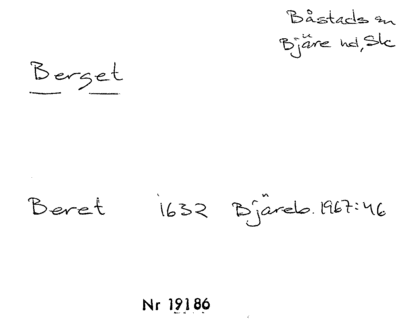 Båstads sn
Bjäre hd, Sk
Berget
Beret 1632 Bjäreb. 1967:46
Nr 19186